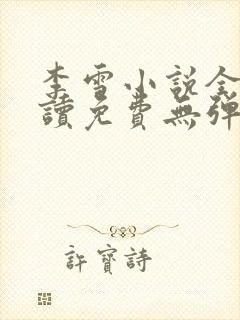 李雪小說全
讀免費無彈
許寶詩